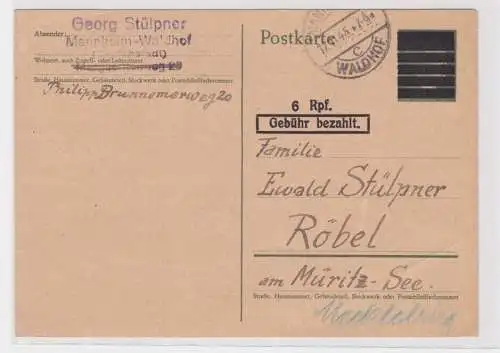 Absender:
Georg Stülpner
Mannheim-Waldhof
Wohnort, auch Zustell- oder Leitpostamt
Straße, Hausnummer, Gebäudeteil, Stockwerk oder Postschließfachnummer
Philipp Brunnemerweg 20
Postkarte
WALDHOF
c
6 Rpf.
Gebühr bezahlt.
Familie
Ewald Stülpner
Röbel
am Müritz-See.
Straße, Hausnummer, Gebäudeteil, Stockwerk oder Postschließfachnummer
Mecklenburg